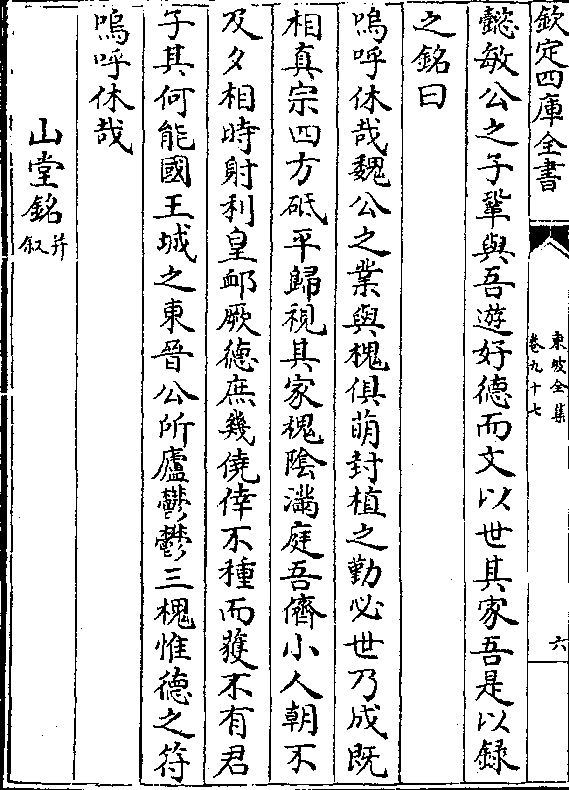 欽定四庫全書
東坡全集
卷九十七
六
懿敏公之子鞏與吾遊好德而文以世其家吾是以録
之銘曰
嗚呼休哉魏公之業與槐俱萌封植之勤必世乃成既
相真宗四方砥平歸視其家槐陰滿庭吾儕小人朝不
及夕相時射利皇卹厥德庶幾僥倖不種而獲不有君
子其何能國王城之東晉公所廬鬱鬱三槐惟德之符
嗚呼休哉
山堂銘并叙